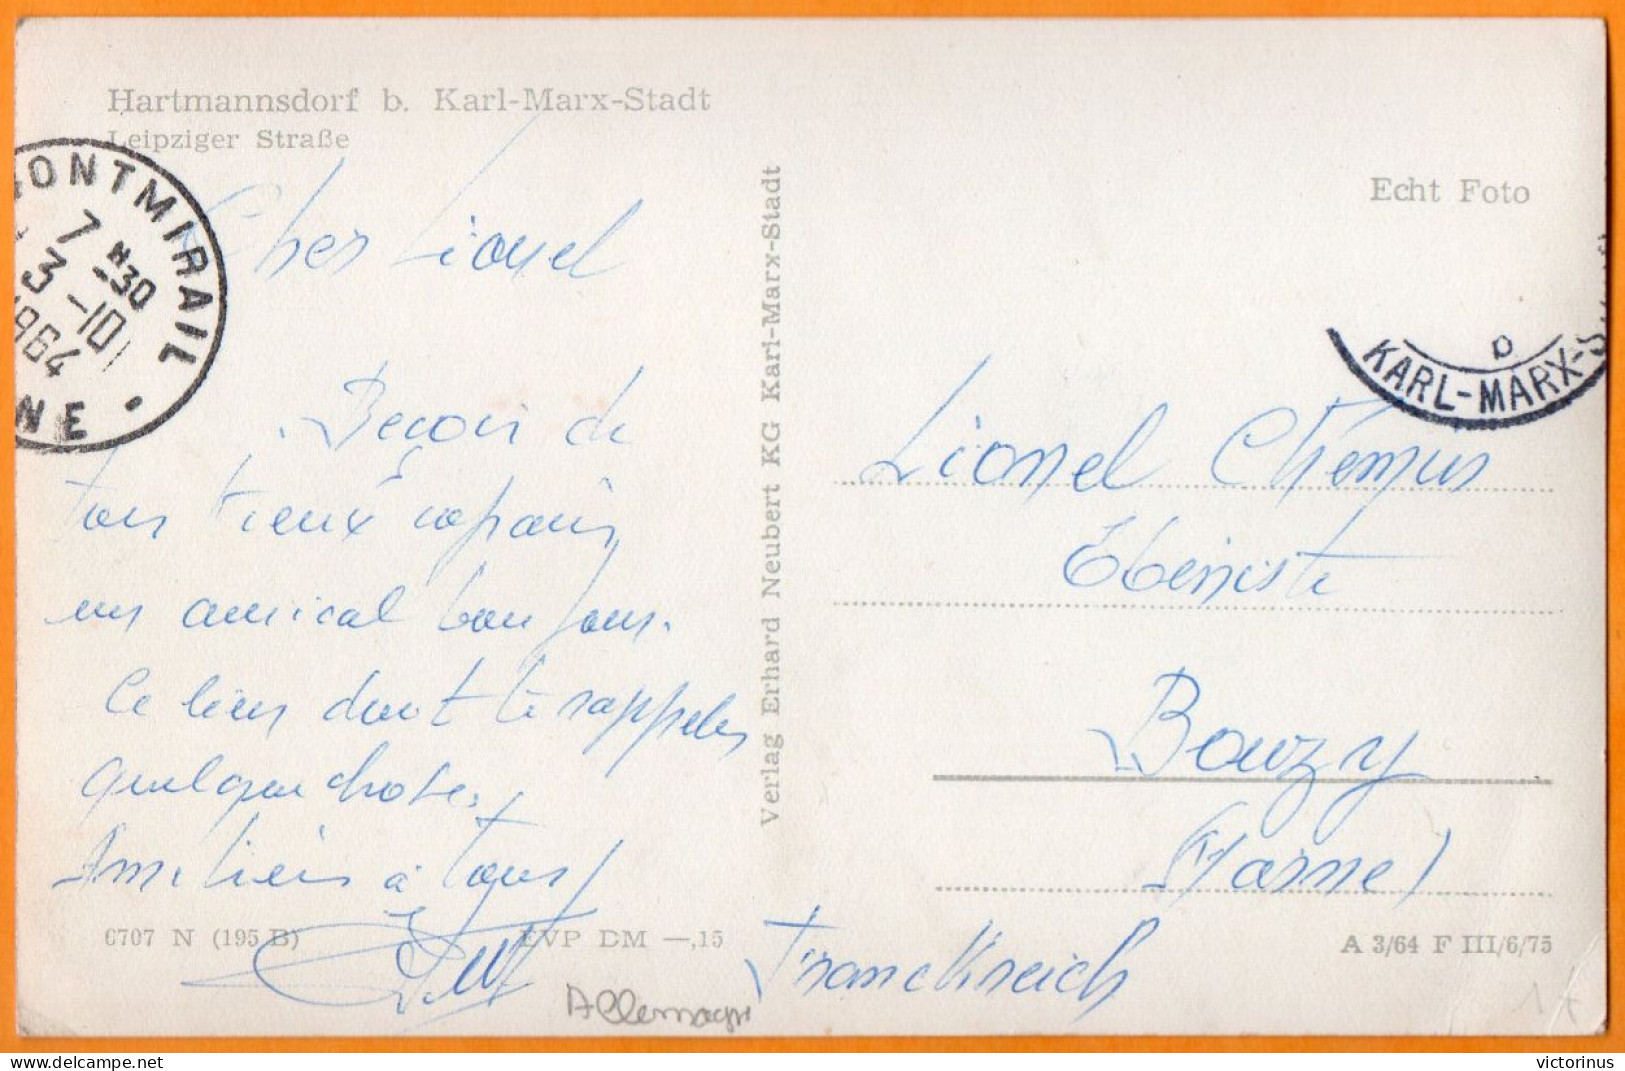 Hartmannsdorf b. Karl-Marx-Stadt
Leipziger Straße
MONTMIRAIL
7 H30
3-10
1964
NE
Cher Lionel
de
ton vieux copain
un amical bonjour.
Ce lieu doit te rappeler
quelque chose.
Amitiés à tous
6707 N (195 B)
EVP DM —,15
Allemagne
Verlag Erhard Neubert KG Karl-Marx-Stadt
Echt Foto
b
KARL-MARX-S
Lionel
Ebeniste
Bouzy
(Marne)
Franckreich
A 3/64 F III/6/75
victorinus